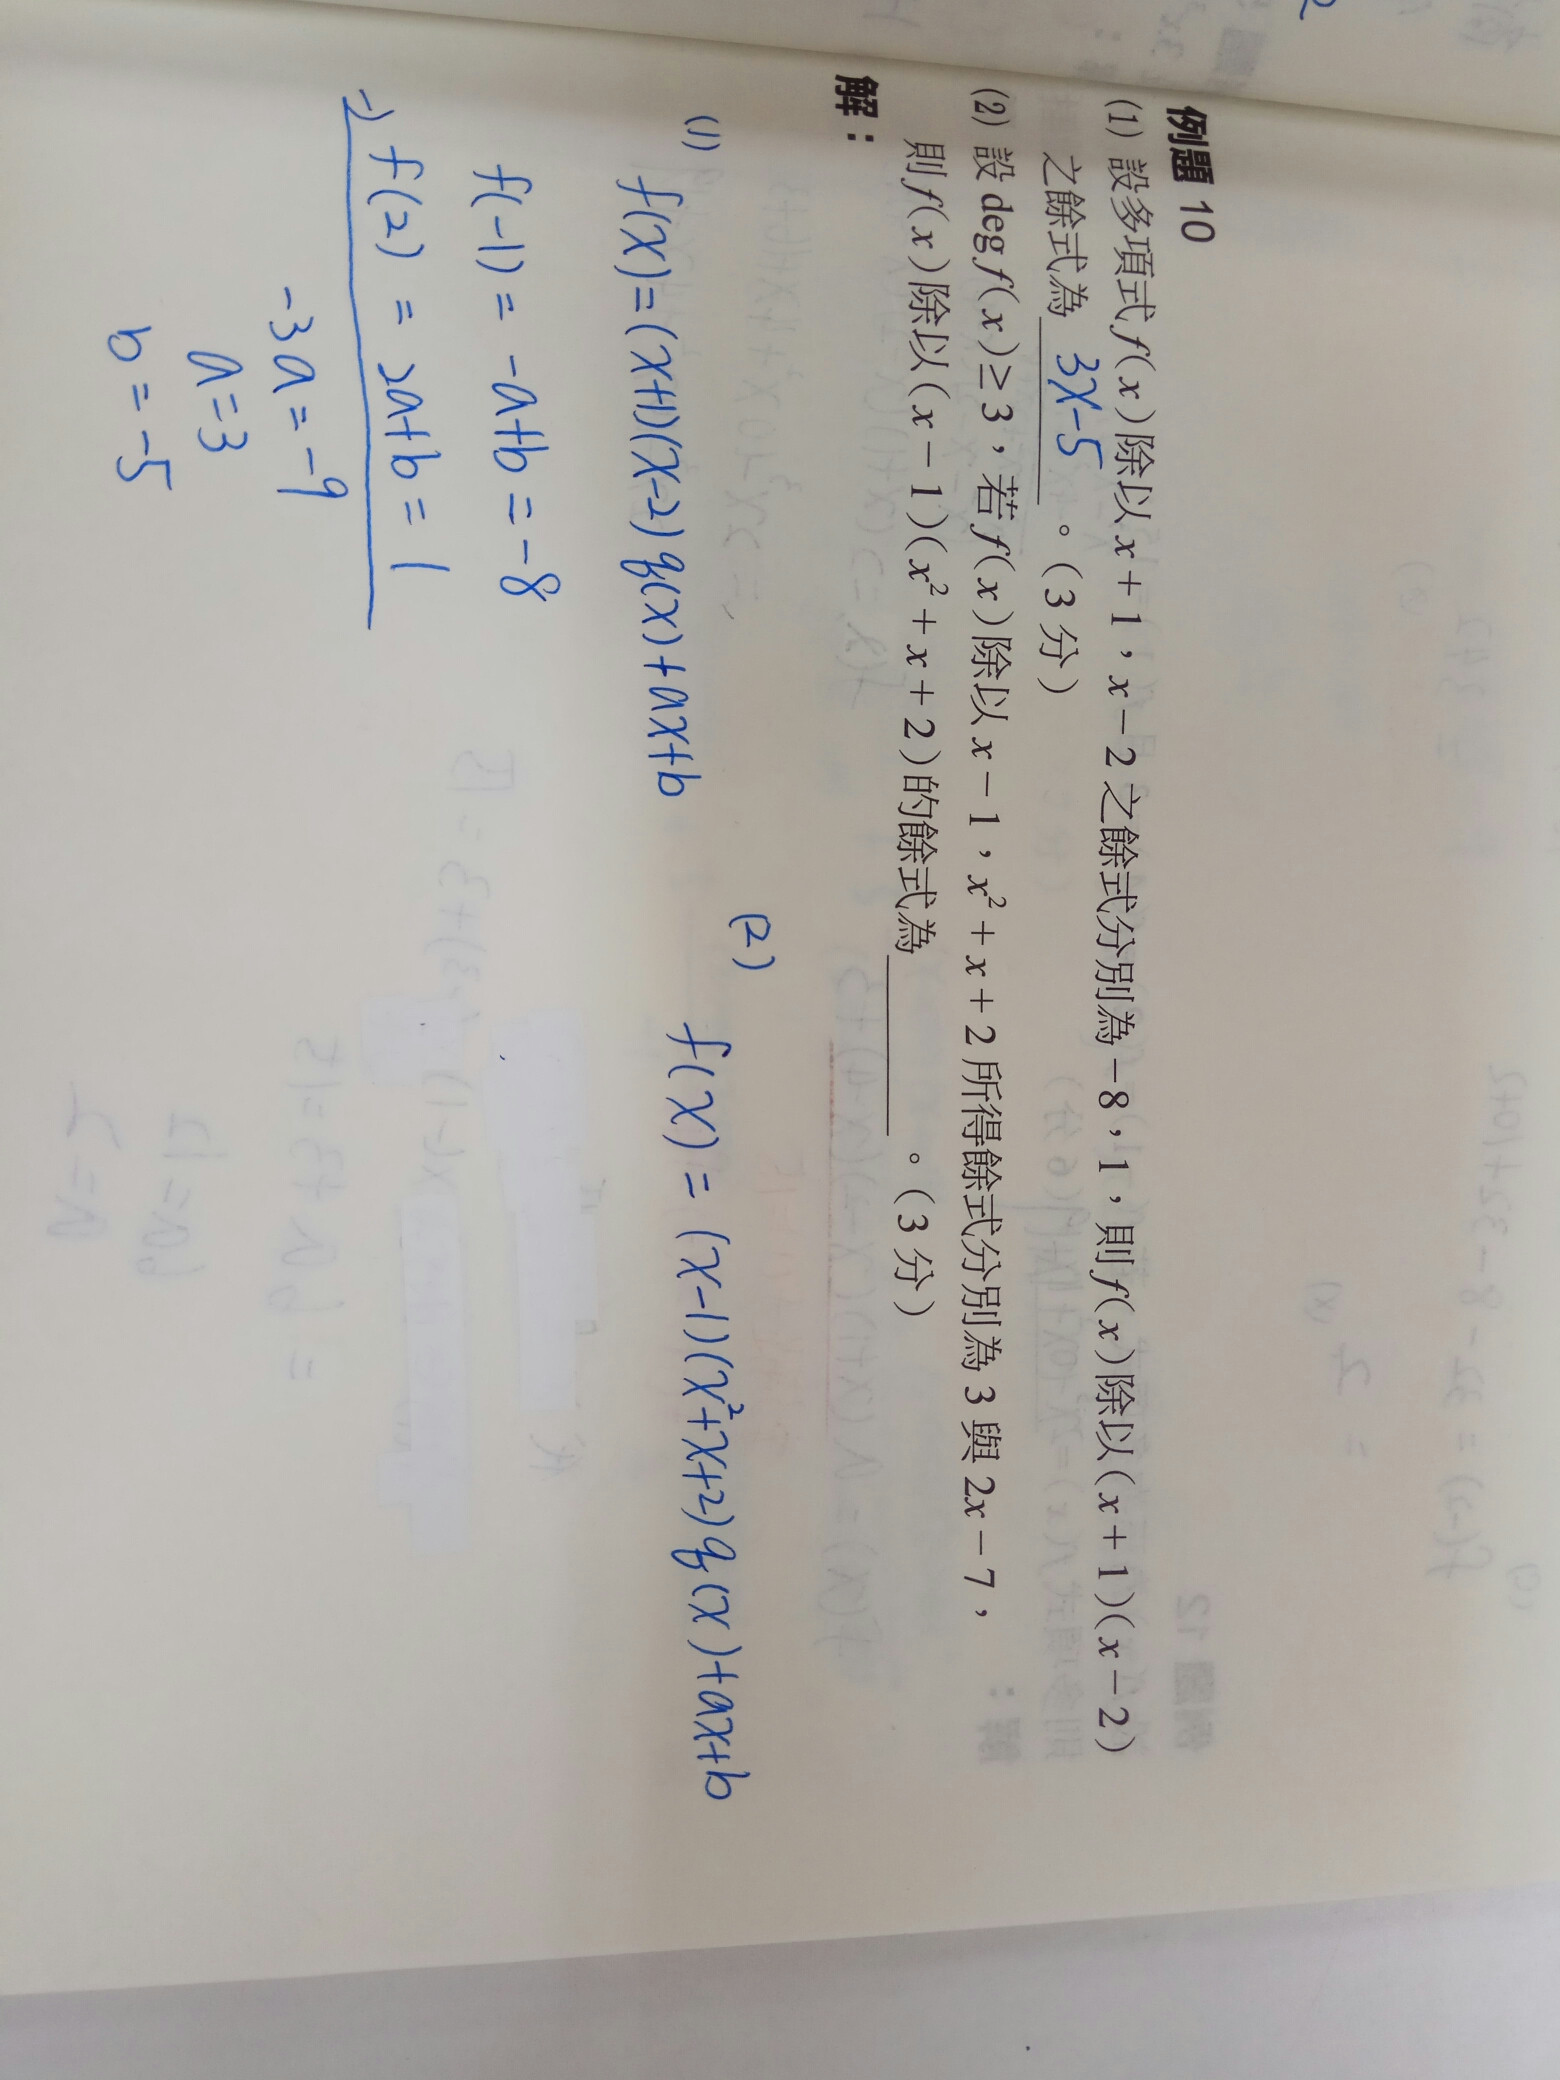 例題 10
(1) 設多項式 f(x) 除以 x+1，x-2 之餘式分別為-8，1，則 f(x) 除以 (x+1)(x-2)
之餘式為 3x-5 。(3 分)
(2) 設 deg f(x)≥3，若 f(x) 除以 x-1，x²+x+2 所得餘式分別為 3 與 2x-7，
則 f(x) 除以 (x-1)(x²+x+2) 的餘式為______。(3 分)
解：
(1)
f(x)=(x+1)(x-2)q(x)+ax+b
f(-1)=-a+b=-8
-) f(2)=2a+b=1
-3a=-9
a=3
b=-5
(2)
f(x)=(x-1)(x²+x+2)q(x)+ax+b